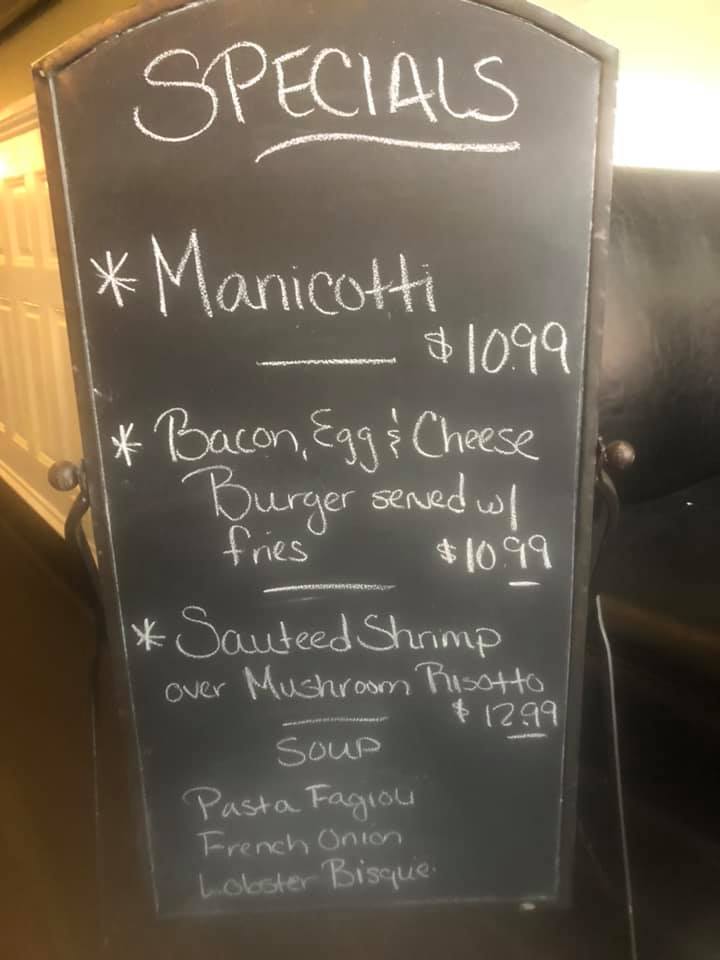 SPECIALS
* Manicotti
$10.99
* Bacon, Egg & Cheese
Burger served w/
fries $10.99
* Sauteed Shrimp
over Mushroom Risotto
$12.99
SOUP
Pasta Fagioli
French Onion
Lobster Bisque